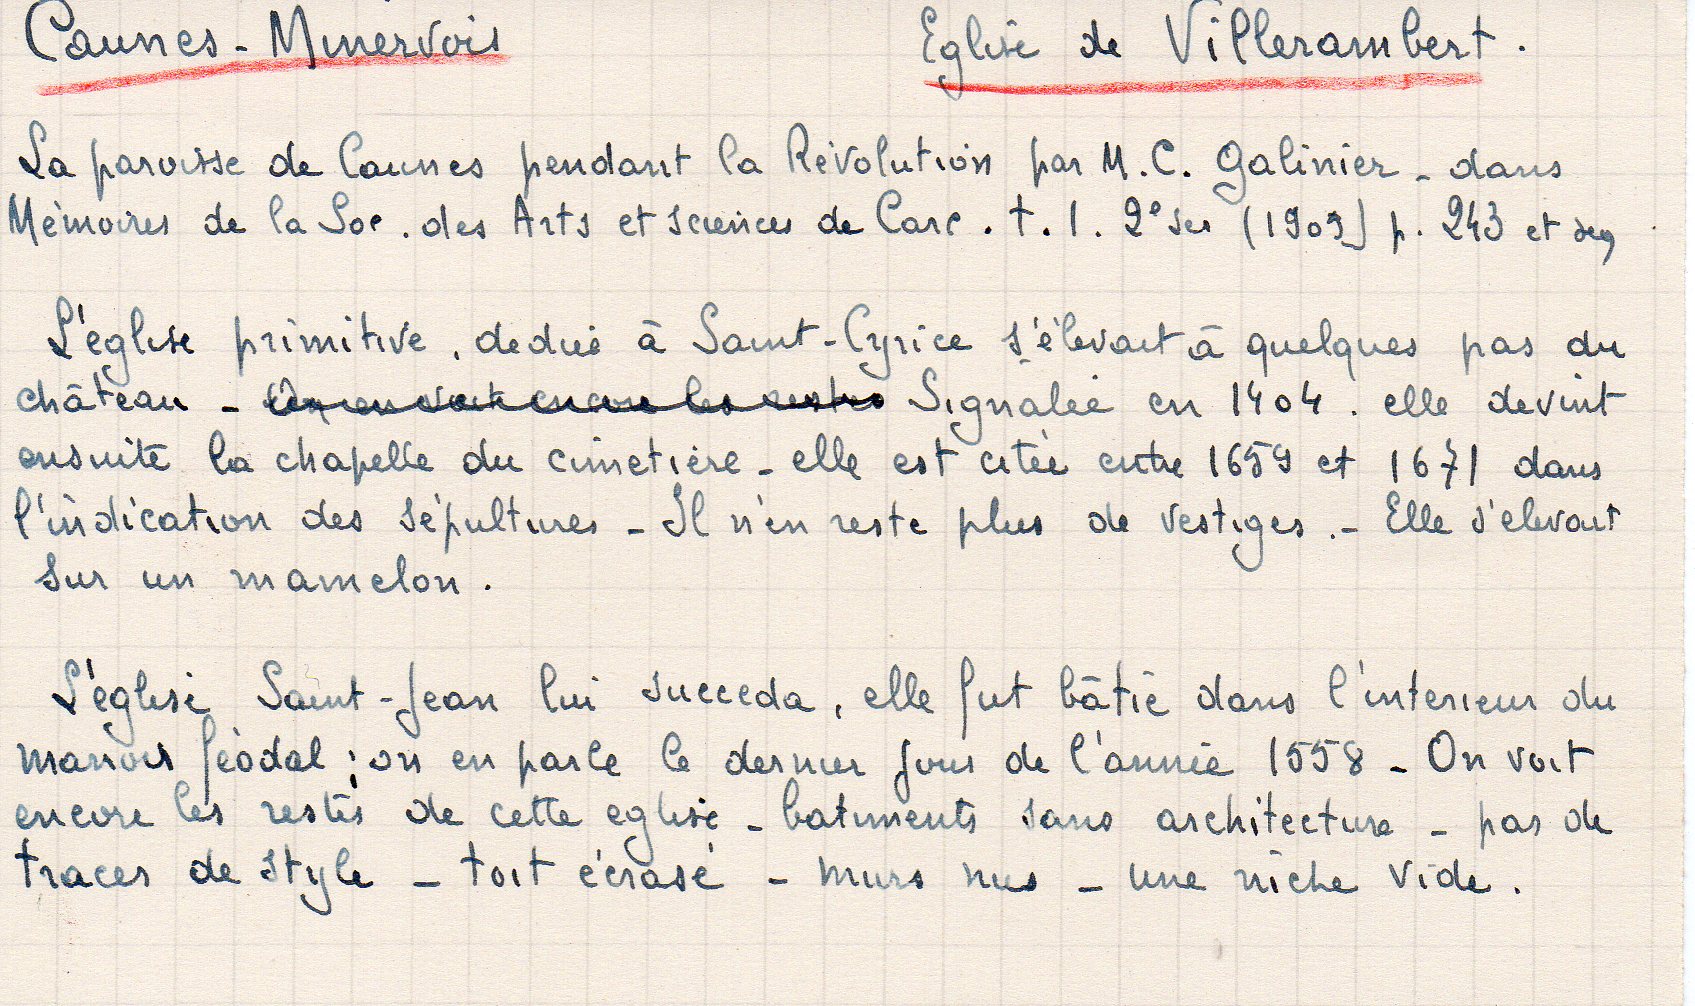 Caunes-Minervois   Eglise de Villerambert.
La paroisse de Caunes pendant la Révolution par M. C. Galinier - dans
Mémoires de la Soc. des Arts et Sciences de Carc. t. 1. 2e Ser (1909) p. 243 et seq
L'église primitive, dediée à Saint-Cyrice s'élevait à quelques pas du
château - On en voit encore les restes Signalée en 1404. elle devint
ensuite la chapelle du cimetière - elle est citée entre 1659 et 1671 dans
l'indication des sépultures - Il n'en reste plus de vestiges. - Elle s'elevait
sur un mamelon.
L'église Saint-Jean lui succeda, elle fut bâtie dans l'interieur du
manoir féodal ; on en parle le dernier jour de l'année 1558 - On voit
encore les restes de cette eglise - batiments sans architecture - pas de
traces de style - toit écrasé - murs nus - une niche vide.